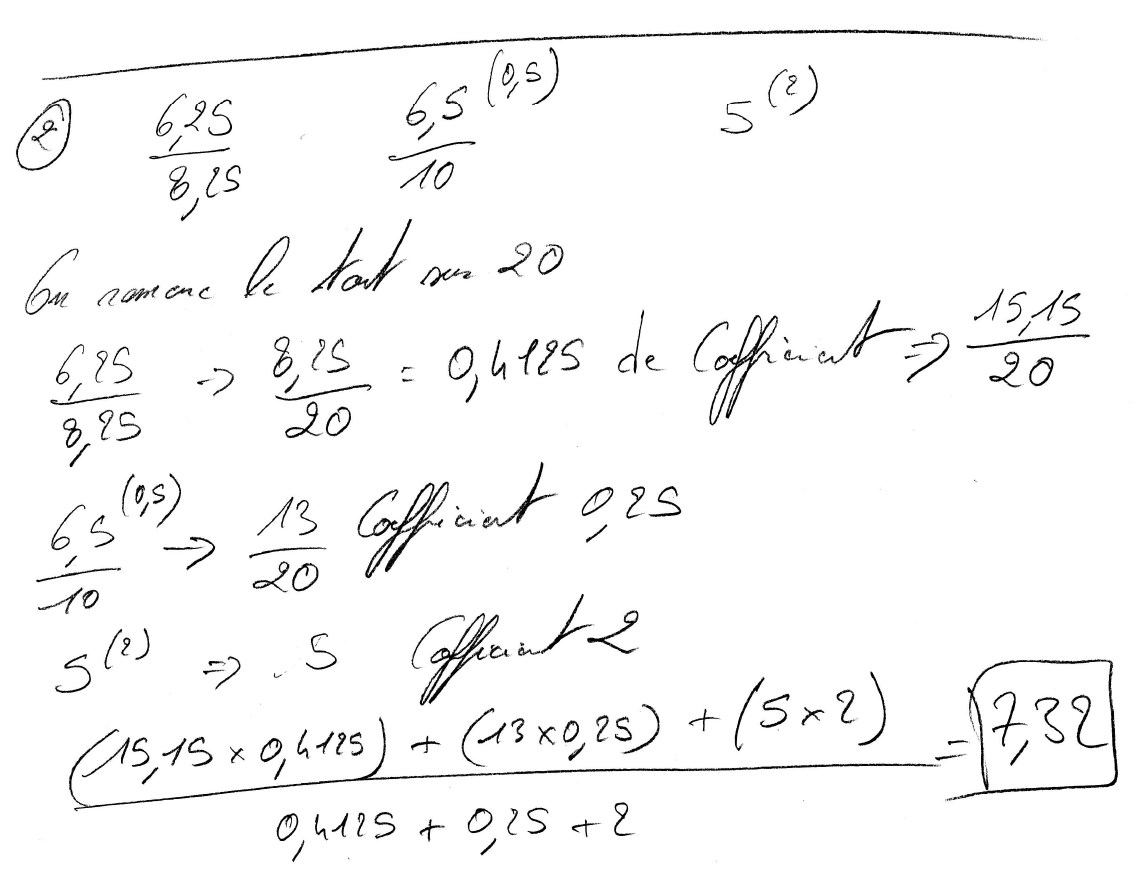 ② 6,25/8,25 6,5/10 (0,5) 5 (2)
On ramene le tout sur 20
6,25/8,25 → 8,25/20 = 0,4125 de Coefficient ⇒ 15,15/20
6,5/10 (0,5) → 13/20 Coefficient 0,25
5 (2) ⇒ 5 Coefficient 2
((15,15 × 0,4125) + (13 × 0,25) + (5 × 2))/(0,4125 + 0,25 + 2) = 7,32